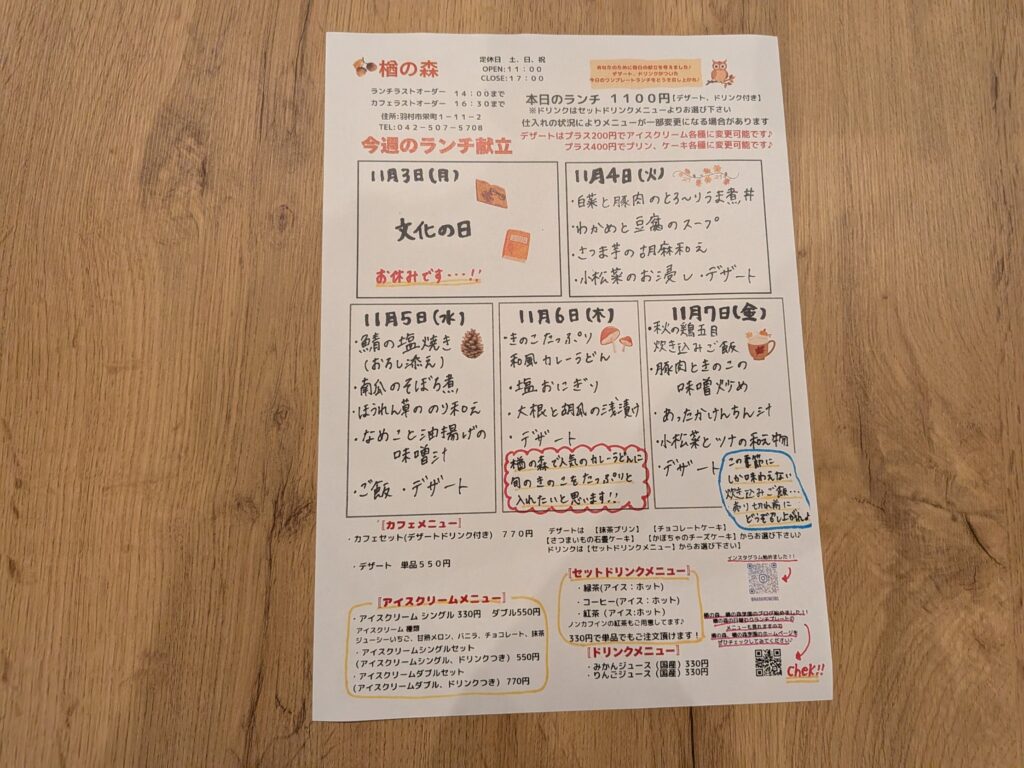 楢の森
定休日 土、日、祝
OPEN:11:00
CLOSE:17:00
ランチラストオーダー 14:00まで
カフェラストオーダー 16:30まで
住所:羽村市栄町1-11-2
TEL:042-507-5708
あなたのために毎日の献立を考えました!
デザート、ドリンクがついた
今日のワンプレートランチをどうぞ召し上がれ♪
本日のランチ 1100円【デザート、ドリンク付き】
※ドリンクはセットドリンクメニューよりお選び下さい
仕入れの状況によりメニューが一部変更になる場合があります
デザートはプラス200円でアイスクリーム各種に変更可能です♪
プラス400円でプリン、ケーキ各種に変更可能です♪
今週のランチ献立
11月3日(月)
文化の日
お休みです・・・!!
11月4日(火)
・白菜と豚肉のとろ〜りうま煮丼
・わかめと豆腐のスープ
・さつま芋の胡麻和え
・小松菜のお浸し ・デザート
11月5日(水)
・鯖の塩焼き
(おろし添え)
・南瓜のそぼろ煮
・ほうれん草ののり和え
・なめこと油揚げの
味噌汁
・ご飯 ・デザート
11月6日(木)
・きのこたっぷり
和風カレーうどん
・塩おにぎり
・大根と胡瓜の浅漬け
・デザート
楢の森で人気のカレーうどんに
旬のきのこをたっぷりと
入れたいと思います!!
11月7日(金)
・秋の鶏五目
炊き込みご飯
・豚肉ときのこの
味噌炒め
・あったかけんちん汁
・小松菜とツナの和え物
・デザート
この季節に
しか味わえない
炊き込みご飯…
売り切れ前に
どうぞ召し上がれ♪
『カフェメニュー』
・カフェセット(デザートドリンク付き) 770円
・デザート 単品550円
デザートは 【抹茶プリン】 【チョコレートケーキ】
【さつまいもの石畳ケーキ】 【かぼちゃのチーズケーキ】からお選び下さい♪
ドリンクは【セットドリンクメニュー】からお選び下さい】
『アイスクリームメニュー』
・アイスクリーム シングル 330円 ダブル550円
アイスクリーム 種類
ジューシーいちご、甘熟メロン、バニラ、チョコレート、抹茶
・アイスクリームシングルセット
(アイスクリームシングル、ドリンクつき) 550円
・アイスクリームダブルセット
(アイスクリームダブル、ドリンクつき) 770円
『セットドリンクメニュー』
・緑茶(アイス:ホット)
・コーヒー(アイス:ホット)
・紅茶(アイス:ホット)
ノンカフィンの紅茶もご用意してます♪
330円で単品でもご注文頂けます!
『ドリンクメニュー』
・みかんジュース(国産)330円
・りんごジュース(国産)330円
インスタグラム始めました!!
楢の森、楢の森学園のブログ始めました!!
楢の森の日替わりランチプレートの
メニューも見れますので
楢の森、楢の森学園のホームページを
ぜひチェックしてみてください♪
Chek!!